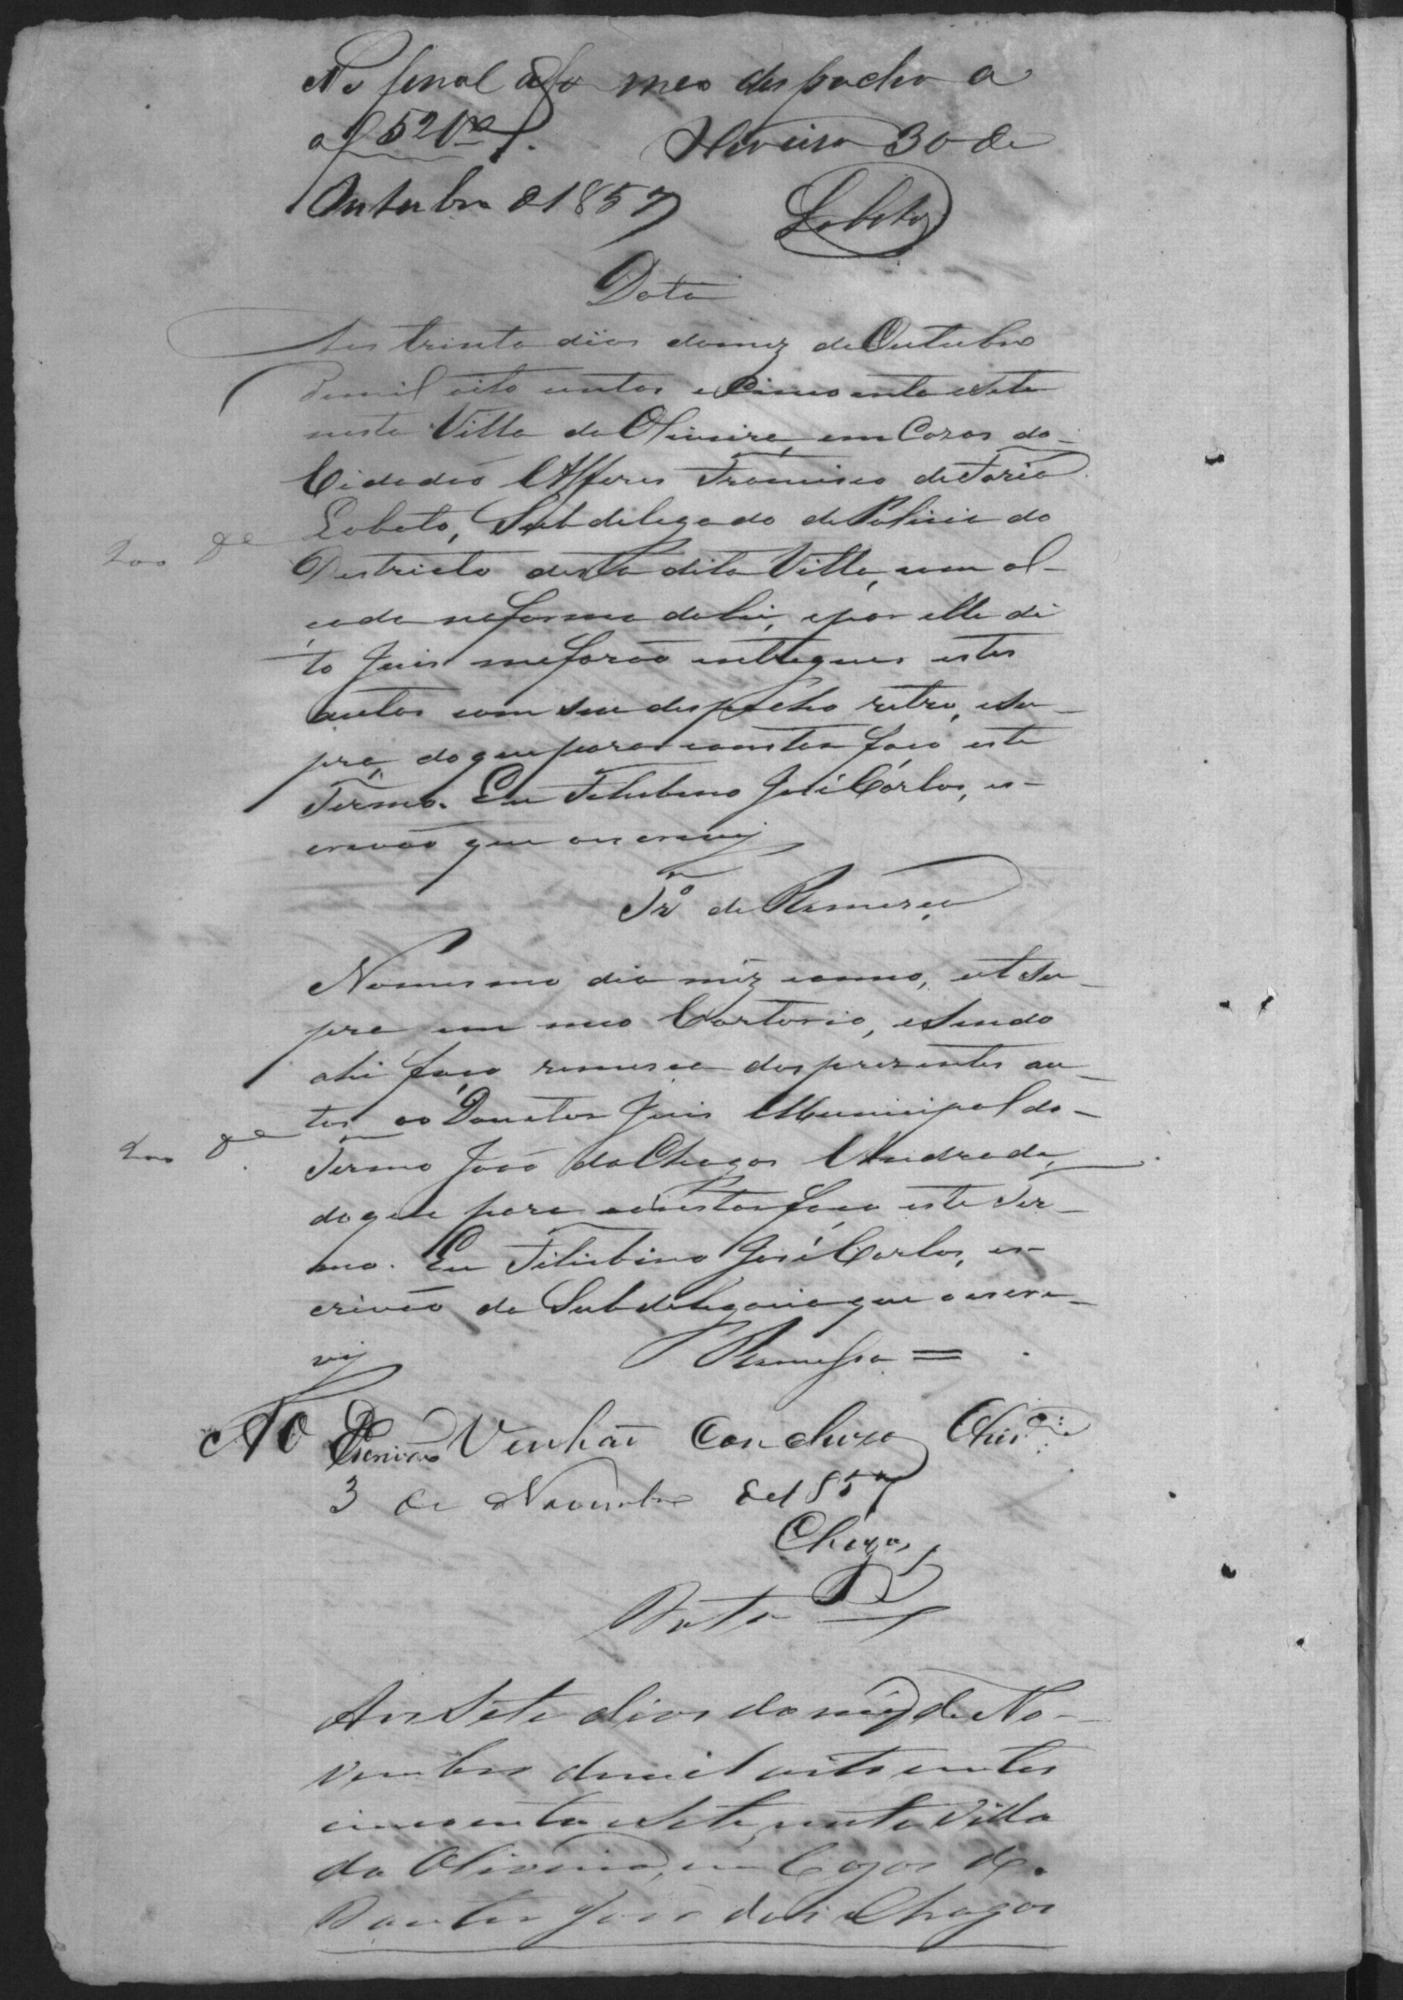 No final do meo despacho a
Oliveira 30 de
Outubro de 1857 Lobato
Data
Aos trinta dias do mez de Outubro
de mil oito centos e Cincoenta e Sete
nesta Villa da Oliveira, em Cazas do
Cidadão Alferes Francisco de Faria
Lobato, Subdelegado de Policia do
200 Destricto desta dita Villa, com al-
çada na forma da Lei, e por elle di
to Juis me forão entregues estes
autos com seu despacho retro, e Su-
pra, do que para constar faço este
Termo. Eu Felisbino José Carlos, es-
crivão que os crevij
Tr.º de Remesa
No mesmo dia mêz e anno, ut Su-
pra em meo Cartorio, e Sendo
ahi faço remesa dos prezentes au-
tos ao Doutor Juis Municipal do
200 Termo José das Chagas Andrade,
do que para constar faço este Ter-
mo. Eu Felisbino José Carlos, es-
crivão da Subdelegacia que o escre-
vij
Remessa =
Ao Escrivão Venhão Concluzos Oliv.ª
3 de Novembro de 1857
Chagas
Data
Aos Sete dias do mêz de No-
vembro de mil oito centos
cincoenta e Sete, nesta Villa
da Oliveira, em Cazas do
Doutor José das Chagas